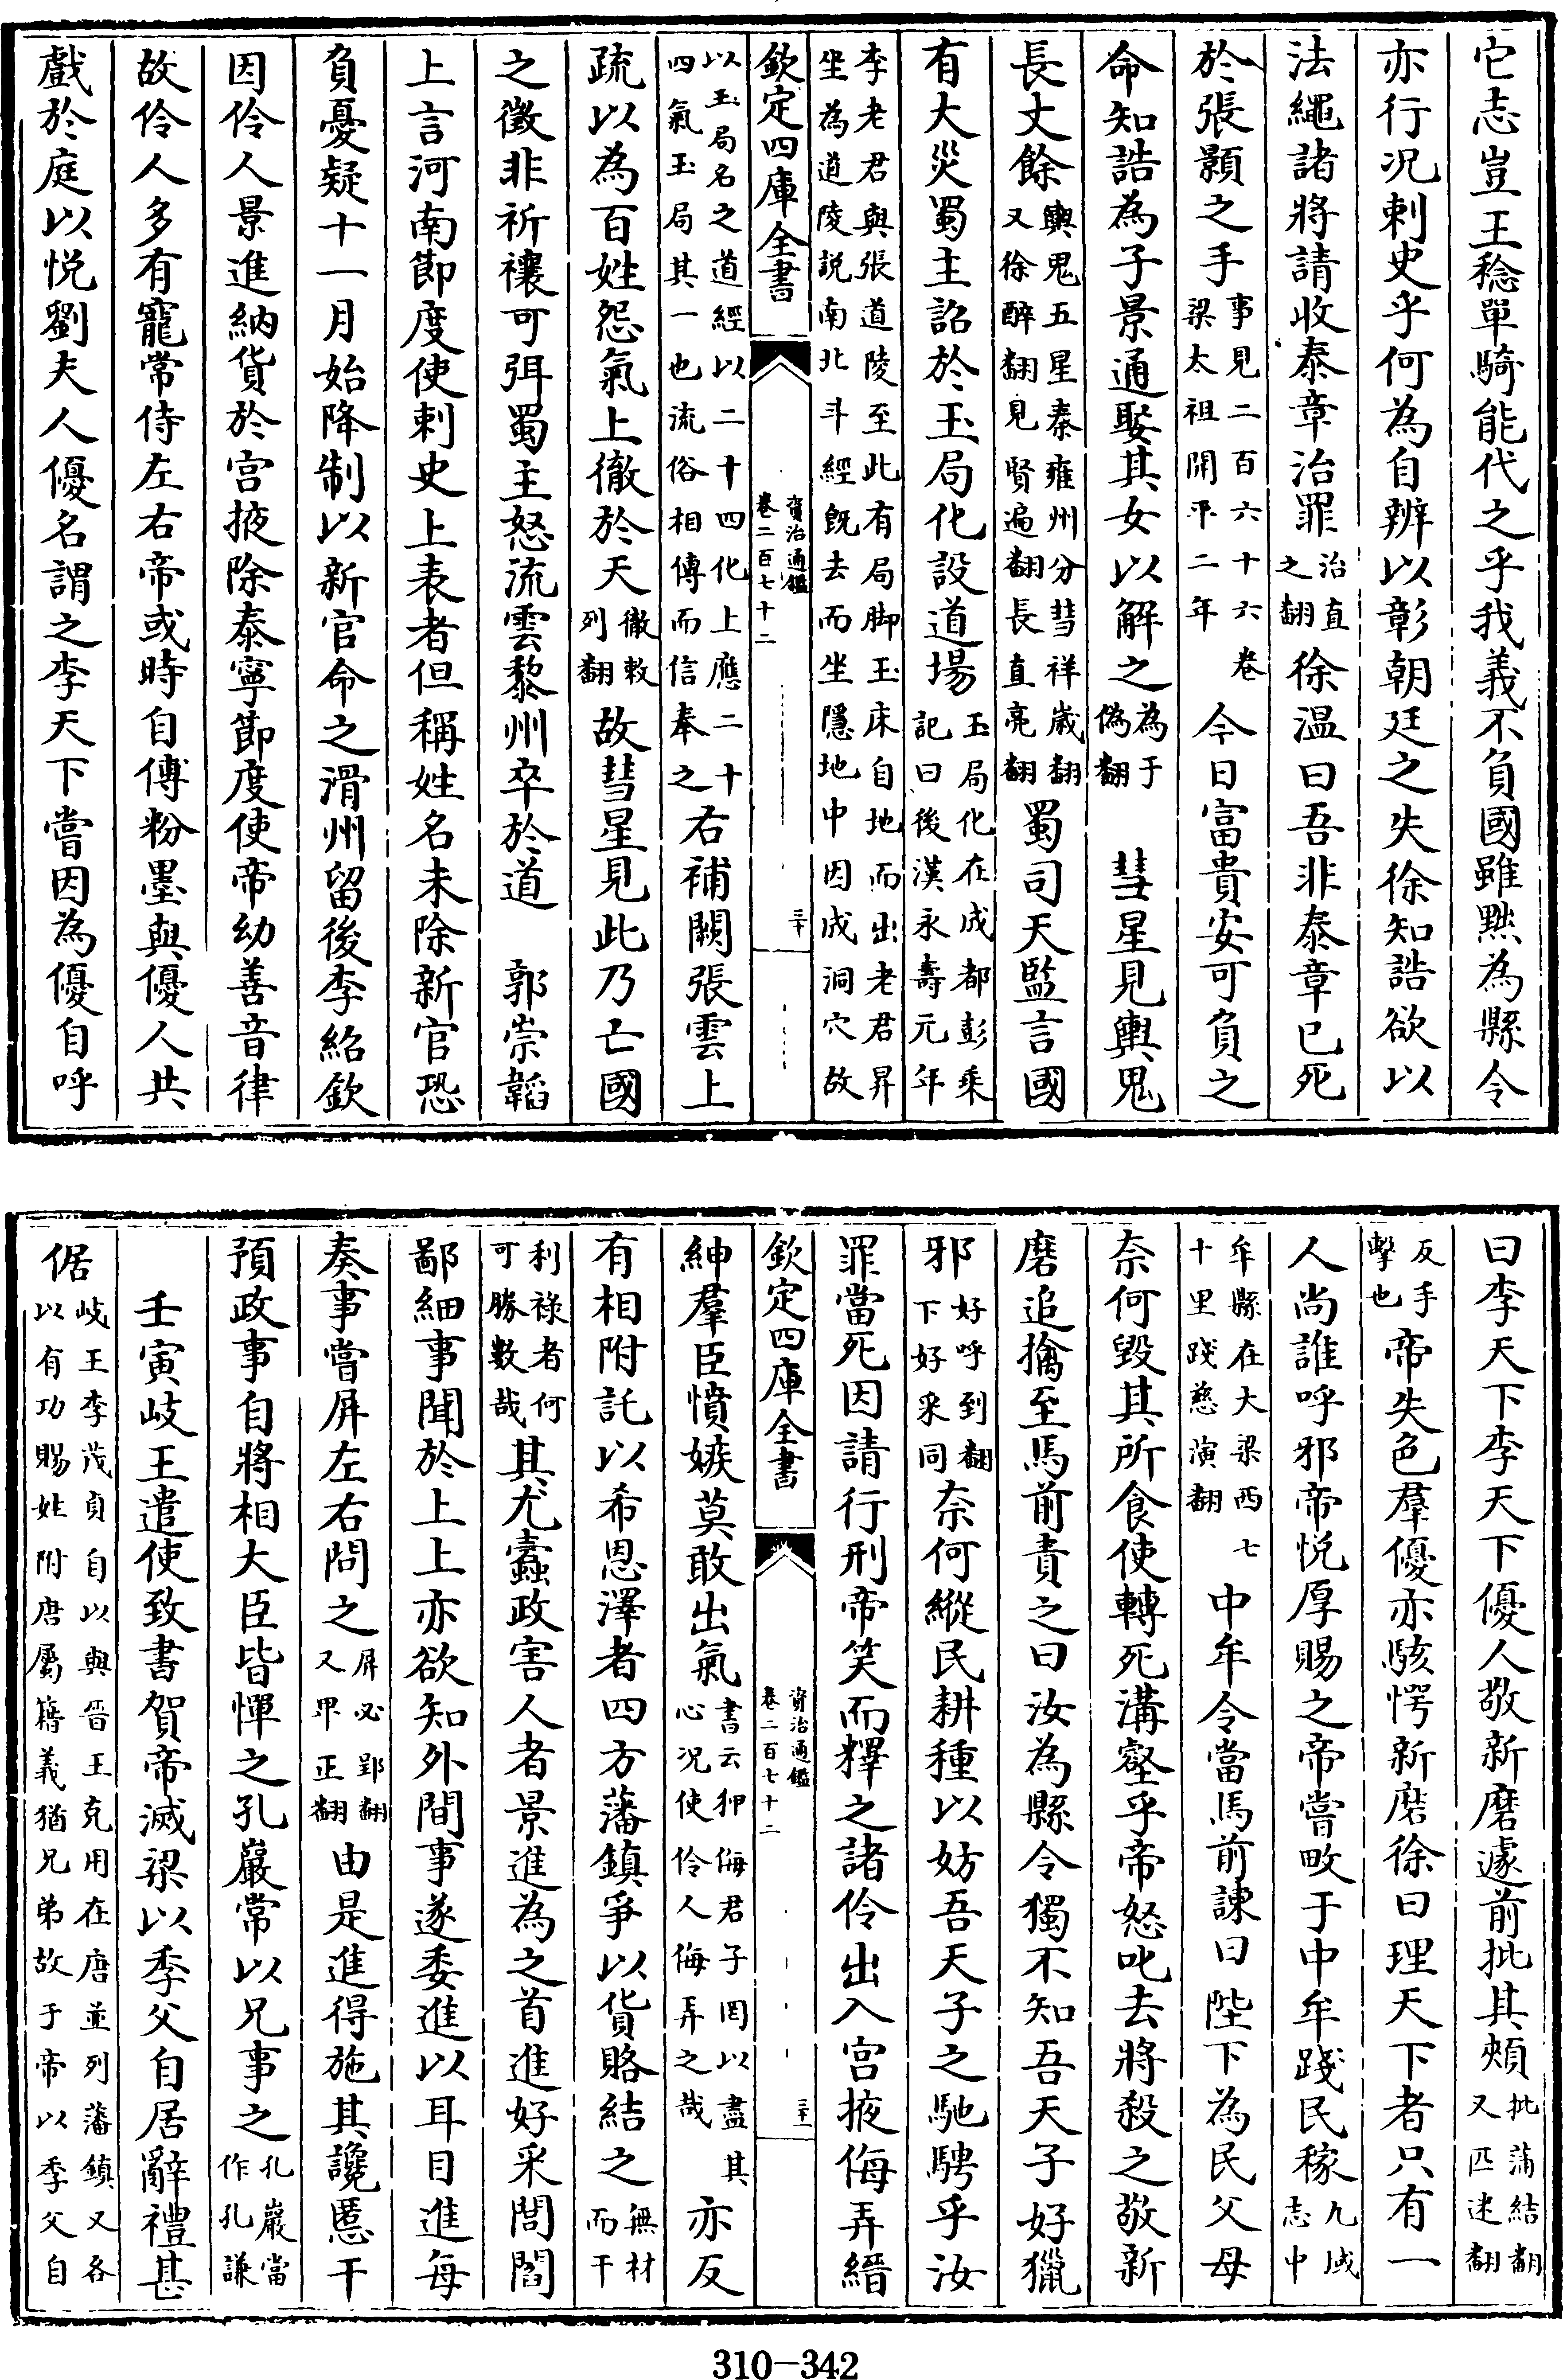 它志豈王稔單騎能代之乎我義不負國雖黜為縣令
亦行况刺史乎何為自辨以彰朝廷之失徐知誥欲以
法繩諸將請收泰章治罪治直之翻徐温曰吾非泰章已死
於張顥之手事見二百六十六卷梁太祖開平二年今日富貴安可負之
命知誥為子景通娶其女以解之為于偽翻 彗星見輿鬼
長丈餘輿鬼五星秦雍州分彗祥歲翻又徐醉翻見賢遍翻長直亮翻蜀司天監言國
有大災蜀主詔於玉局化設道場玉局化在成都彭乘記曰後漢永壽元年
李老君與張道陵至此有局脚玉床自地而出老君昇坐為道陵説南北斗經既去而坐隱地中因成洞穴故
欽定四庫全書 資治通鑑卷二百七十二 三十
以玉局名之道經以二十四化上應二十四氣玉局其一也流俗相傳而信奉之右補闕張雲上
疏以為百姓怨氣上徹於天徹敕列翻故彗星見此乃亡國
之徵非祈禳可弭蜀主怒流雲黎州卒於道 郭崇韜
上言河南節度使刺史上表者但稱姓名未除新官恐
負憂疑十一月始降制以新官命之滑州留後李紹欽
因伶人景進納貨於宫掖除泰寧節度使帝幼善音律
故伶人多有寵常侍左右帝或時自傅粉墨與優人共
戲於庭以悦劉夫人優名謂之李天下嘗因為優自呼
曰李天下李天下優人敬新磨遽前批其頰批蒲結翻又匹迷翻
反手擊也帝失色羣優亦駭愕新磨徐曰理天下者只有一
人尚誰呼邪帝悦厚賜之帝嘗畋于中牟踐民稼九域志中
牟縣在大梁西七十里踐慈演翻中牟令當馬前諫曰陛下為民父母
奈何毁其所食使轉死溝壑乎帝怒叱去將殺之敬新
磨追擒至馬前責之曰汝為縣令獨不知吾天子好獵
邪好呼到翻下好采同奈何縱民耕種以妨吾天子之馳騁乎汝
罪當死因請行刑帝笑而釋之諸伶出入宫掖侮弄縉
欽定四庫全書 資治通鑑卷二百七十二 三十一
紳羣臣憤嫉莫敢出氣書云狎侮君子罔以盡其心况使伶人侮弄之哉亦反
有相附託以希恩澤者四方藩鎮爭以貨賂結之無材而干
利禄者何可勝數哉其尤蠹政害人者景進為之首進好采閭閻
鄙細事聞於上上亦欲知外間事遂委進以耳目進每
奏事嘗屏左右問之屏必郢翻又卑正翻由是進得施其讒慝干
預政事自將相大臣皆憚之孔巖常以兄事之孔巖當作孔謙
壬寅岐王遣使致書賀帝滅梁以季父自居辭禮甚
倨岐王李茂貞自以與晉王克用在唐並列藩鎮又各以有功賜姓附唐屬籍義猶兄弟故于帝以季父自
310-342